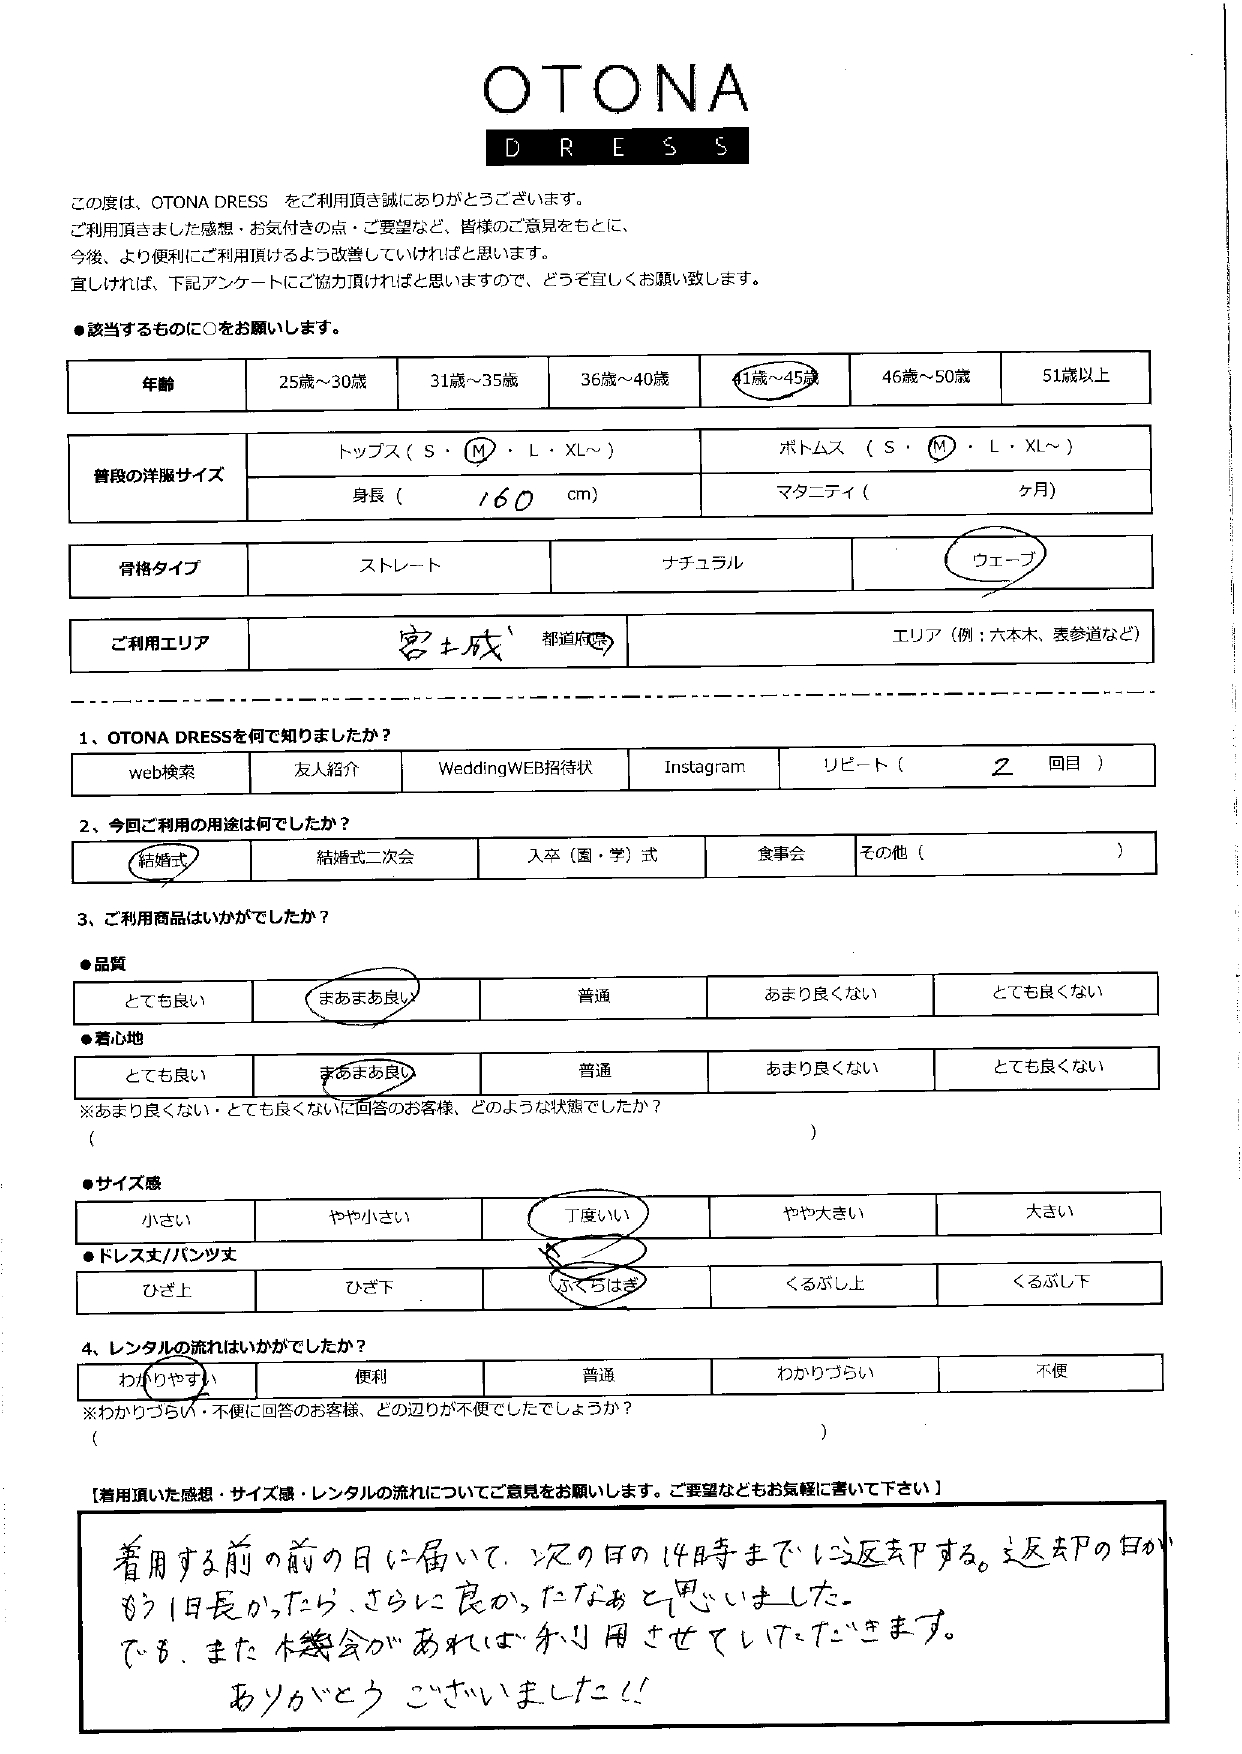 OTONA
DRESS
この度は、OTONA DRESS　をご利用頂き誠にありがとうございます。
ご利用頂きました感想・お気付きの点・ご要望など、皆様のご意見をもとに、
今後、より便利にご利用頂けるよう改善していければと思います。
宜しければ、下記アンケートにご協力頂ければと思いますので、どうぞ宜しくお願い致します。
●該当するものに○をお願いします。
年齢 25歳～30歳 31歳～35歳 36歳～40歳 41歳～45歳 46歳～50歳 51歳以上
普段の洋服サイズ トップス ( S ・ M ・ L ・ XL～ ) ボトムス ( S ・ M ・ L ・ XL～ )
身長 ( 160 cm) マタニティ ( ヶ月)
骨格タイプ ストレート ナチュラル ウェーブ
ご利用エリア 宮城 都道府県 エリア（例：六本木、表参道など）
1、OTONA DRESSを何で知りましたか？
web検索 友人紹介 WeddingWEB招待状 Instagram リピート ( 2 回目 )
2、今回ご利用の用途は何でしたか？
結婚式 結婚式二次会 入卒（園・学）式 食事会 その他 ( )
3、ご利用商品はいかがでしたか？
●品質
とても良い まあまあ良い 普通 あまり良くない とても良くない
●着心地
とても良い まあまあ良い 普通 あまり良くない とても良くない
※あまり良くない・とても良くないに回答のお客様、どのような状態でしたか？
( )
●サイズ感
小さい やや小さい 丁度いい やや大きい 大きい
●ドレス丈/パンツ丈
ひざ上 ひざ下 ふくらはぎ くるぶし上 くるぶし下
4、レンタルの流れはいかがでしたか？
わかりやすい 便利 普通 わかりづらい 不便
※わかりづらい・不便に回答のお客様、どの辺りが不便でしたでしょうか？
( )
【着用頂いた感想・サイズ感・レンタルの流れについてご意見をお願いします。ご要望などもお気軽に書いて下さい】
着用する前の前の日に届いて、次の日の14時までに返却する。返却の日が
もう1日長かったら、さらに良かったなぁと思いました。
でも、また機会があれば利用させていただきます。
ありがとうございました!!